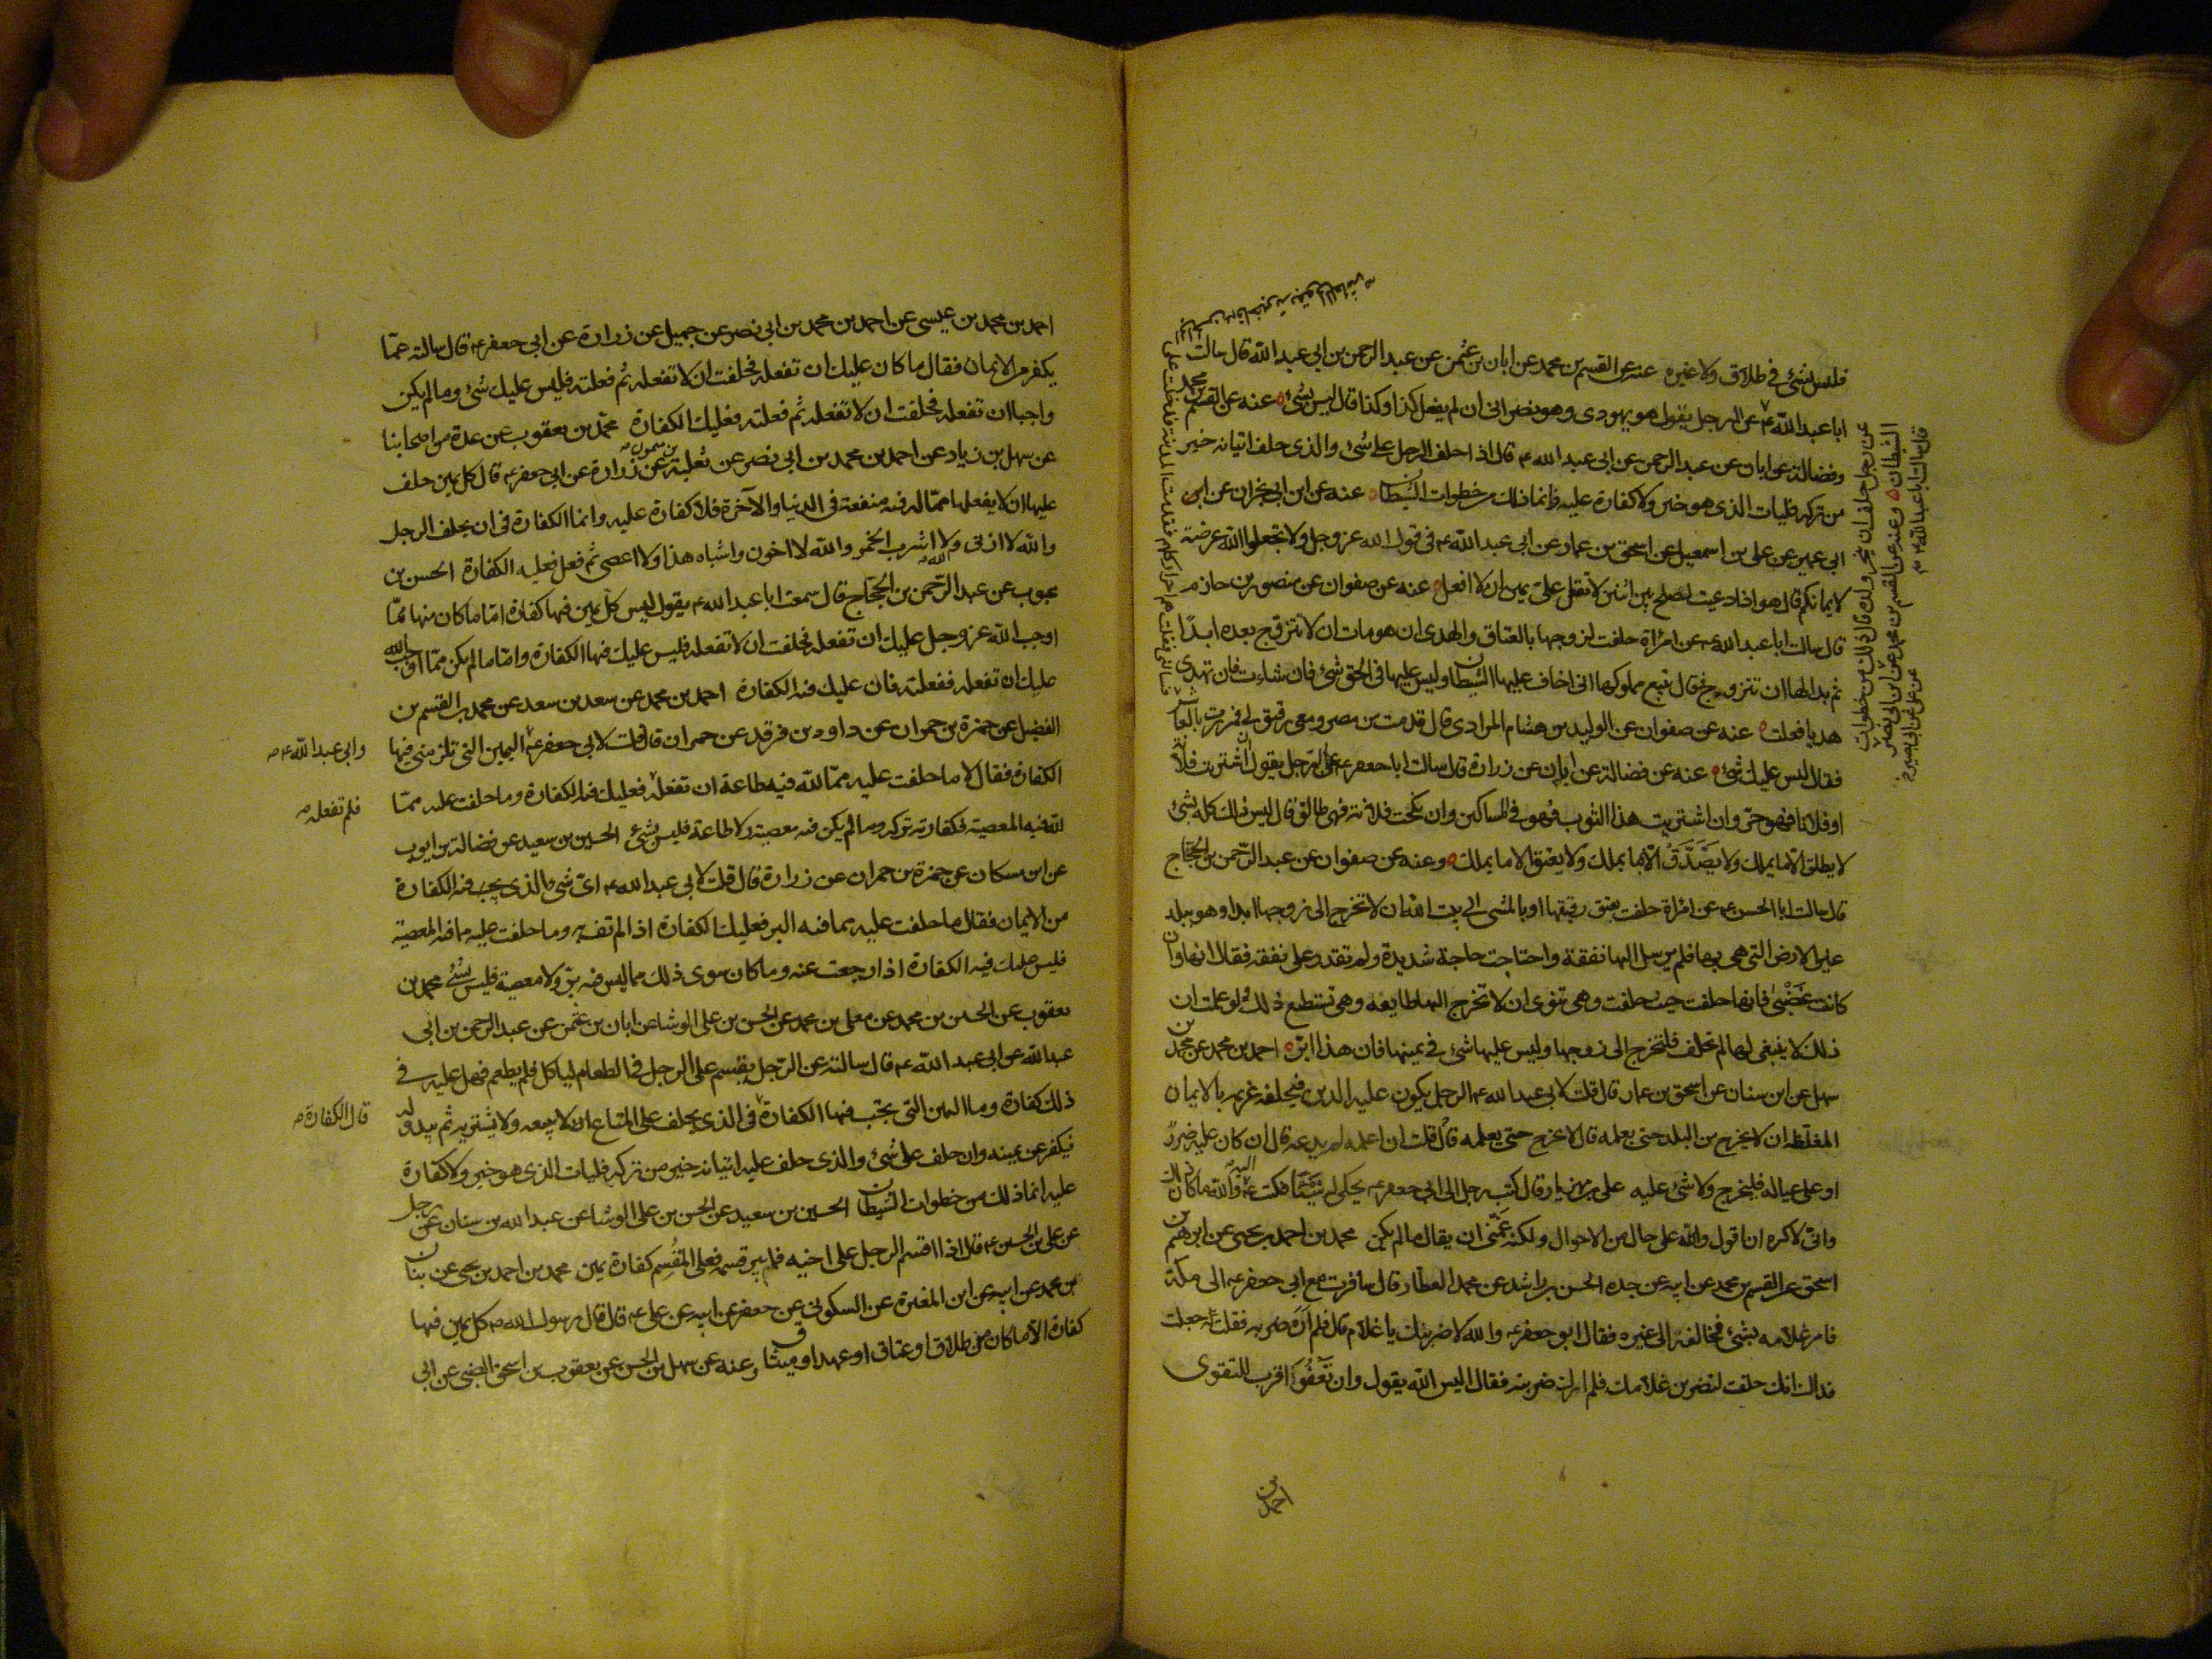 فليس بشئ في طلاق ولا غيره عنه عن القسم بن محمد عن ابان بن عثمن عن عبد الرحمن بن ابي عبد الله قال سالت
ابا عبد الله ع عن الرجل يقول هو يهودى وهو نصرانى ان لم يفعل كذا وكذا قال ليس بشئ عنه عن القسم بن محمد
وفضالة عن ابان عن عبد الرحمن عن ابى عبد الله ع قال اذا حلف الرجل على شئ والذى حلف اتيانه خير
من تركه فليات الذى هو خير ولا كفارة عليه وانما ذلك من خطوات الشيطان عنه عن ابن ابى نجران عن ابن
ابى عمير عن على بن اسمعيل عن اسحق بن عمار عن ابى عبد الله ع فى قول الله عز وجل ولا تجعلوا الله عرضة
لايمانكم قال هو اذا دعيت لصلح بين اثنين لا تقل على يمين ان لا افعل عنه عن صفوان عن منصور بن حازم
قال سالت ابا عبد الله ع عن امرأة حلفت لزوجها بالعتاق والهدى ان هو مات ان لا تتزوج بعده ابدًا
ثم بدا لها ان تتزوج قال تبيع مملوكها انى اخاف عليها الشيطان وليس عليها فى الحق شئ فان شاءت ان تهدى
هديا فعلت عنه عن صفوان عن الوليد بن هشام المرادى قال قدمت من مصر ومعى رقيق لى فمررت بالعاشر
فقال ليس عليك شئ عنه عن فضالة عن ابان عن زرارة قال سالت ابا جعفر ع عن الرجل يقول ان اشتريت فلانا
او فلانا فهو حر وان اشتريت هذا الثوب فهو فى المساكين وان نكحت فلانة فهى طالق قال ليس ذلك كله بشئ
لا يطلق الا ما يملك ولا يصَّدَّق الا بما يملك ولا يعتق الا ما يملك وعنه عن صفوان عن عبد الرحمن بن الحجاج
قال سالت ابا الحسن ع عن امرأة حلفت بعتق رقيقها او بالمشى الى بيت الله ان لا تخرج الى زوجها ابدا وهو ببلد
غير الارض التى هى بها فلم يرسل اليها نفقة واحتاجت حاجة شديدة ولم تقدر على نفقة فقال انها وان
كانت غضبى فانها حلفت حيث حلفت وهى تنوى ان لا تخرج اليه طايعة وهى تستطيع ذلك ولو علمت ان
ذلك لا ينبغى لها لم تحلف فلتخرج الى زوجها وليس عليها شئ فى يمينها فان هذا ابر احمد بن محمد عن محمد بن
سهل عن ابن سنان عن اسحق بن عمار قال قلت لابى عبد الله ع الرجل يكون عليه الدين فيحلفه غريمه بالايمان
المغلظة ان لا يخرج من البلد حتى يعلمه قال لا يخرج حتى يعلمه قال قلت ان اعلمه لم يدعه قال ان كان عليه ضررٌ
او على عياله فليخرج ولا شئ عليه على بن مهزيار قال كتب رجل الى ابى جعفر ع يحكى له شيئا فكتب ع اليه والله ما كان ذلك
وانى لاكره ان اقول والله على حال من الاحوال ولكنه غمّنى ان يقال ما لم يكن محمد بن احمد بن يحيى عن ابرهيم بن
اسحق عن القسم بن محمد عن ابيه عن جده الحسن بن راشد عن محمد العطار قال سافرت مع ابى جعفر ع الى مكة
فامر غلامه بشئ فخالفه الى غيره فقال ابو جعفر ع والله لاضربنك يا غلام قال فلم اره ضربه فقلت له جعلت
فداك انك حلفت لتضربن غلامك فلم ارك ضربته فقال اليس الله يقول وان تعفوا اقرب للتقوى
احمد بن
عن رجل حلف ان ينحر ولده قال ذلك من خطوات
الشيطان وعنه عن القسم بن محمد عن ابن ابى نصر
قال سالت ابا عبد الله ع
عن على عن ابى بصير
احمد بن محمد بن عيسى عن احمد بن محمد بن ابى نصر عن جميل عن زرارة عن ابى جعفر ع قال سالته عمّا
يكفر من الايمان فقال ما كان عليك ان تفعله فحلفت ان لا تفعله ثم فعلته فليس عليك شئ وما لم يكن
واجبا ان تفعله فحلفت ان لا تفعله ثم فعلته فعليك الكفارة محمد بن يعقوب عن عدة من اصحابنا
عن سهل بن زياد عن احمد بن محمد بن ابى نصر عن ثعلبة بن ميمون عن زرارة عن ابى جعفر ع قال كل يمين حلف
عليها ان لا يفعلها مما له فيه منفعة فى الدنيا والآخرة فلا كفارة عليه وانما الكفارة فى ان يحلف الرجل
والله لا ازنى والله لا اشرب الخمر والله لا اخون واشباه هذا ولا اعصى ثم فعل فعليه الكفارة الحسن بن
محبوب عن عبد الرحمن بن الحجاج قال سمعت ابا عبد الله ع يقول ليس كل يمين فيها كفارة اما ما كان منها ممّا
اوجب الله عز وجل عليك ان تفعله فحلفت ان لا تفعله فليس عليك فيها الكفارة واما ما لم يكن ممّا اوجب الله
عليك ان تفعله ففعلته فان عليك فيه الكفارة احمد بن محمد عن سعد بن سعد عن محمد بن القسم بن
الفضيل عن حمزة بن حمران عن داود بن فرقد عن حمران قال قلت لابى جعفر ع اليمين التى تلزمنى فيها
وابى عبد الله ع
الكفارة فقالا ما حلفت عليه مما لله فيه طاعة ان تفعله فعليك فيه الكفارة وما حلفت عليه ممّا
فلم تفعله
لله فيه المعصية فكفارته تركه وما لم يكن فيه معصية ولا طاعة فليس بشئ الحسين بن سعيد عن فضالة بن ايوب
عن ابن مسكان عن حمزة بن حمران عن زرارة قال قلت لابى عبد الله ع اىّ شئ الذى يجب فيه الكفارة
من الايمان فقال ما حلفت عليه مما فيه البر فعليك الكفارة اذا لم تف به وما حلفت عليه مما فيه المعصية
فليس عليك فيه الكفارة اذا رجعت عنه وما كان سوى ذلك مما ليس فيه برّ ولا معصية فليس بشئ محمد بن
يعقوب عن الحسين بن محمد عن معلى بن محمد عن الحسن بن على الوشا عن ابان بن عثمن عن عبد الرحمن بن ابى
عبد الله عن ابى عبد الله ع قال سالته عن الرجل يقسم على الرجل فى الطعام لياكل فلم يطعم فهل عليه فى
ذلك كفارة وما اليمين التى تجب فيها الكفارة فى الذى يحلف على المتاع ان لا يبيعه ولا يشتريه ثم يبدو له
قال الكفارة
فيكفر عن يمينه وان حلف على شئ والذى حلف عليه اتيانه خير من تركه فليات الذى هو خير ولا كفارة
عليه انما ذلك من خطوات الشيطان الحسين بن سعيد عن الحسن بن على الوشا عن عبد الله بن سنان عن رجل
عن على بن الحسين ع قال اذا اقسم الرجل على اخيه فلم يبر قسمه فعلى المُقسِم كفارة يمين محمد بن احمد بن يحيى عن بنان
بن محمد عن ابيه عن ابن المغيرة عن السكونى عن جعفر عن ابيه عن على ع قال قال رسول الله ص كل يمين فيها
كفارة الا ما كان من طلاق او عتاق او عهد او ميثاق وعنه عن سهل بن الحسن عن يعقوب بن اسحق الضبى عن ابى